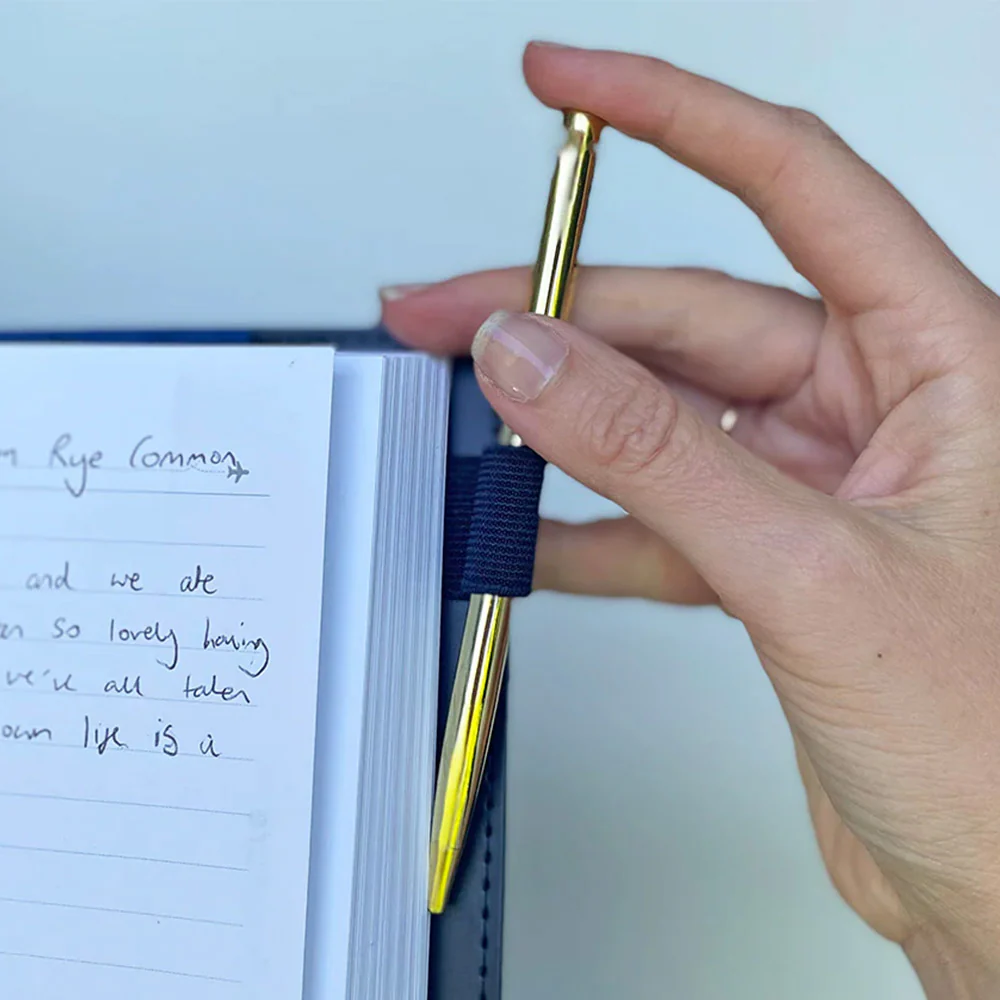 Rye Common
and we ate
so lovely having
we've all taken
own life is a